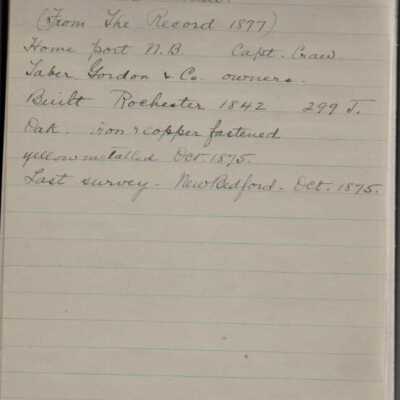 (From The Record 1877)
Home port N.B. Capt. Craw
Taber Gordon & Co. owners.
Built Rochester 1842 299 T.
Oak. iron & copper fastened
yellow metalled Oct. 1875.
Last survey - New Bedford - Oct. 1875.